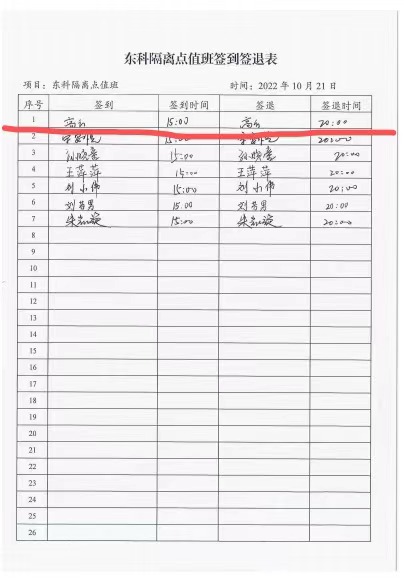 东科隔离点值班签到签退表
项目：东科隔离点值班 时间：2022 年 10 月 21 日
序号 签到 签到时间 签退 签退时间
1 15:00 20:00
2 15:00 20:00
3 15:00 20:00
4 王萍萍 15:00 王萍萍 20:00
5 刘小伟 15:00 刘小伟 20:00
6 15:00 20:00
7 15:00 20:00
8
9
10
11
12
13
14
15
16
17
18
19
20
21
22
23
24
25
26